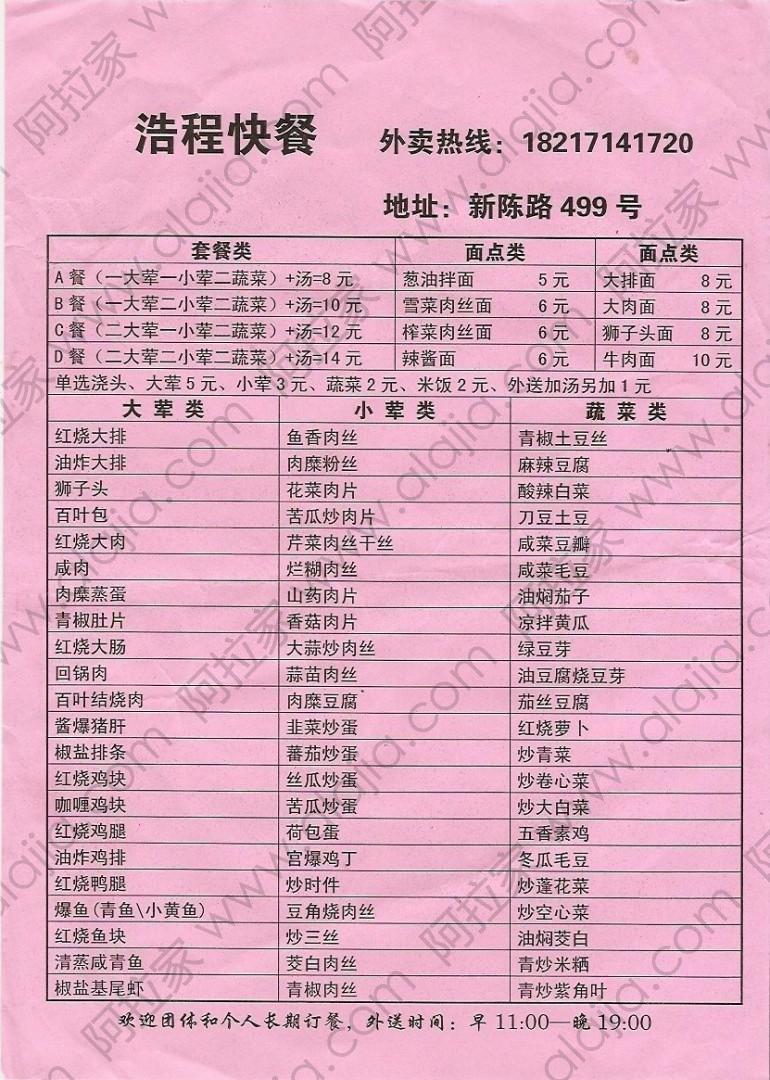 浩程快餐 外卖热线：18217141720
地址：新陈路 499 号
套餐类 面点类 面点类
A 餐（一大荤一小荤二蔬菜）+汤=8 元 葱油拌面 5 元 大排面 8 元
B 餐（一大荤二小荤二蔬菜）+汤=10 元 雪菜肉丝面 6 元 大肉面 8 元
C 餐（二大荤一小荤二蔬菜）+汤=12 元 榨菜肉丝面 6 元 狮子头面 8 元
D 餐（二大荤二小荤二蔬菜）+汤=14 元 辣酱面 6 元 牛肉面 10 元
单选浇头、大荤 5 元、小荤 3 元、蔬菜 2 元、米饭 2 元、外送加汤另加 1 元
大 荤 类 小 荤 类 蔬 菜 类
红烧大排 鱼香肉丝 青椒土豆丝
油炸大排 肉糜粉丝 麻辣豆腐
狮子头 花菜肉片 酸辣白菜
百叶包 苦瓜炒肉片 刀豆土豆
红烧大肉 芹菜肉丝干丝 咸菜豆瓣
咸肉 烂糊肉丝 咸菜毛豆
肉糜蒸蛋 山药肉片 油焖茄子
青椒肚片 香菇肉片 凉拌黄瓜
红烧大肠 大蒜炒肉丝 绿豆芽
回锅肉 蒜苗肉丝 油豆腐烧豆芽
百叶结烧肉 肉糜豆腐 茄丝豆腐
酱爆猪肝 韭菜炒蛋 红烧萝卜
椒盐排条 蕃茄炒蛋 炒青菜
红烧鸡块 丝瓜炒蛋 炒卷心菜
咖喱鸡块 苦瓜炒蛋 炒大白菜
红烧鸡腿 荷包蛋 五香素鸡
油炸鸡排 宫爆鸡丁 冬瓜毛豆
红烧鸭腿 炒时件 炒蓬花菜
爆鱼(青鱼\小黄鱼) 豆角烧肉丝 炒空心菜
红烧鱼块 炒三丝 油焖茭白
清蒸咸青鱼 茭白肉丝 青炒米粞
椒盐基尾虾 青椒肉丝 青炒紫角叶
欢迎团体和个人长期订餐，外送时间：早 11:00—晚 19:00
阿拉家 www.alajia.com